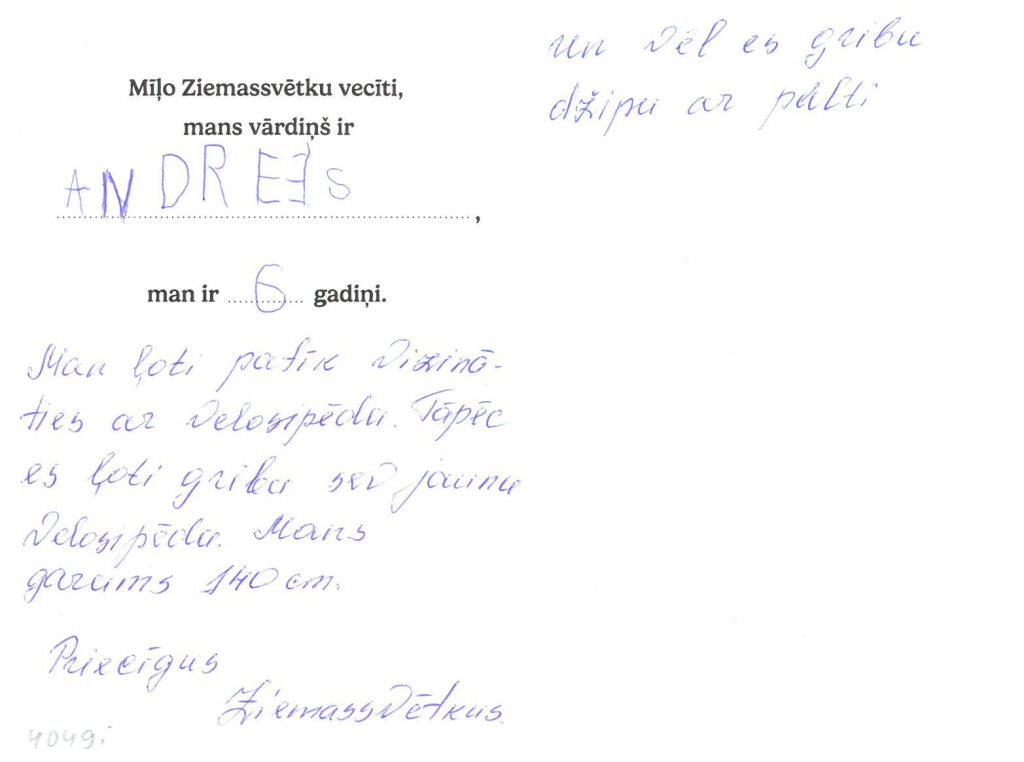 Mīļo Ziemassvētku vecīti,
mans vārdiņš ir
ANDREJS,
man ir 6 gadiņi.
Man ļoti patīk vizinā-
ties ar velosipēdu. Tāpēc
es ļoti gribu sev jaunu
velosipēdu. Mans
garums 140 cm.
Priecīgus
Ziemassvētkus.
4049i
un vēl es gribu
džipu ar pulti